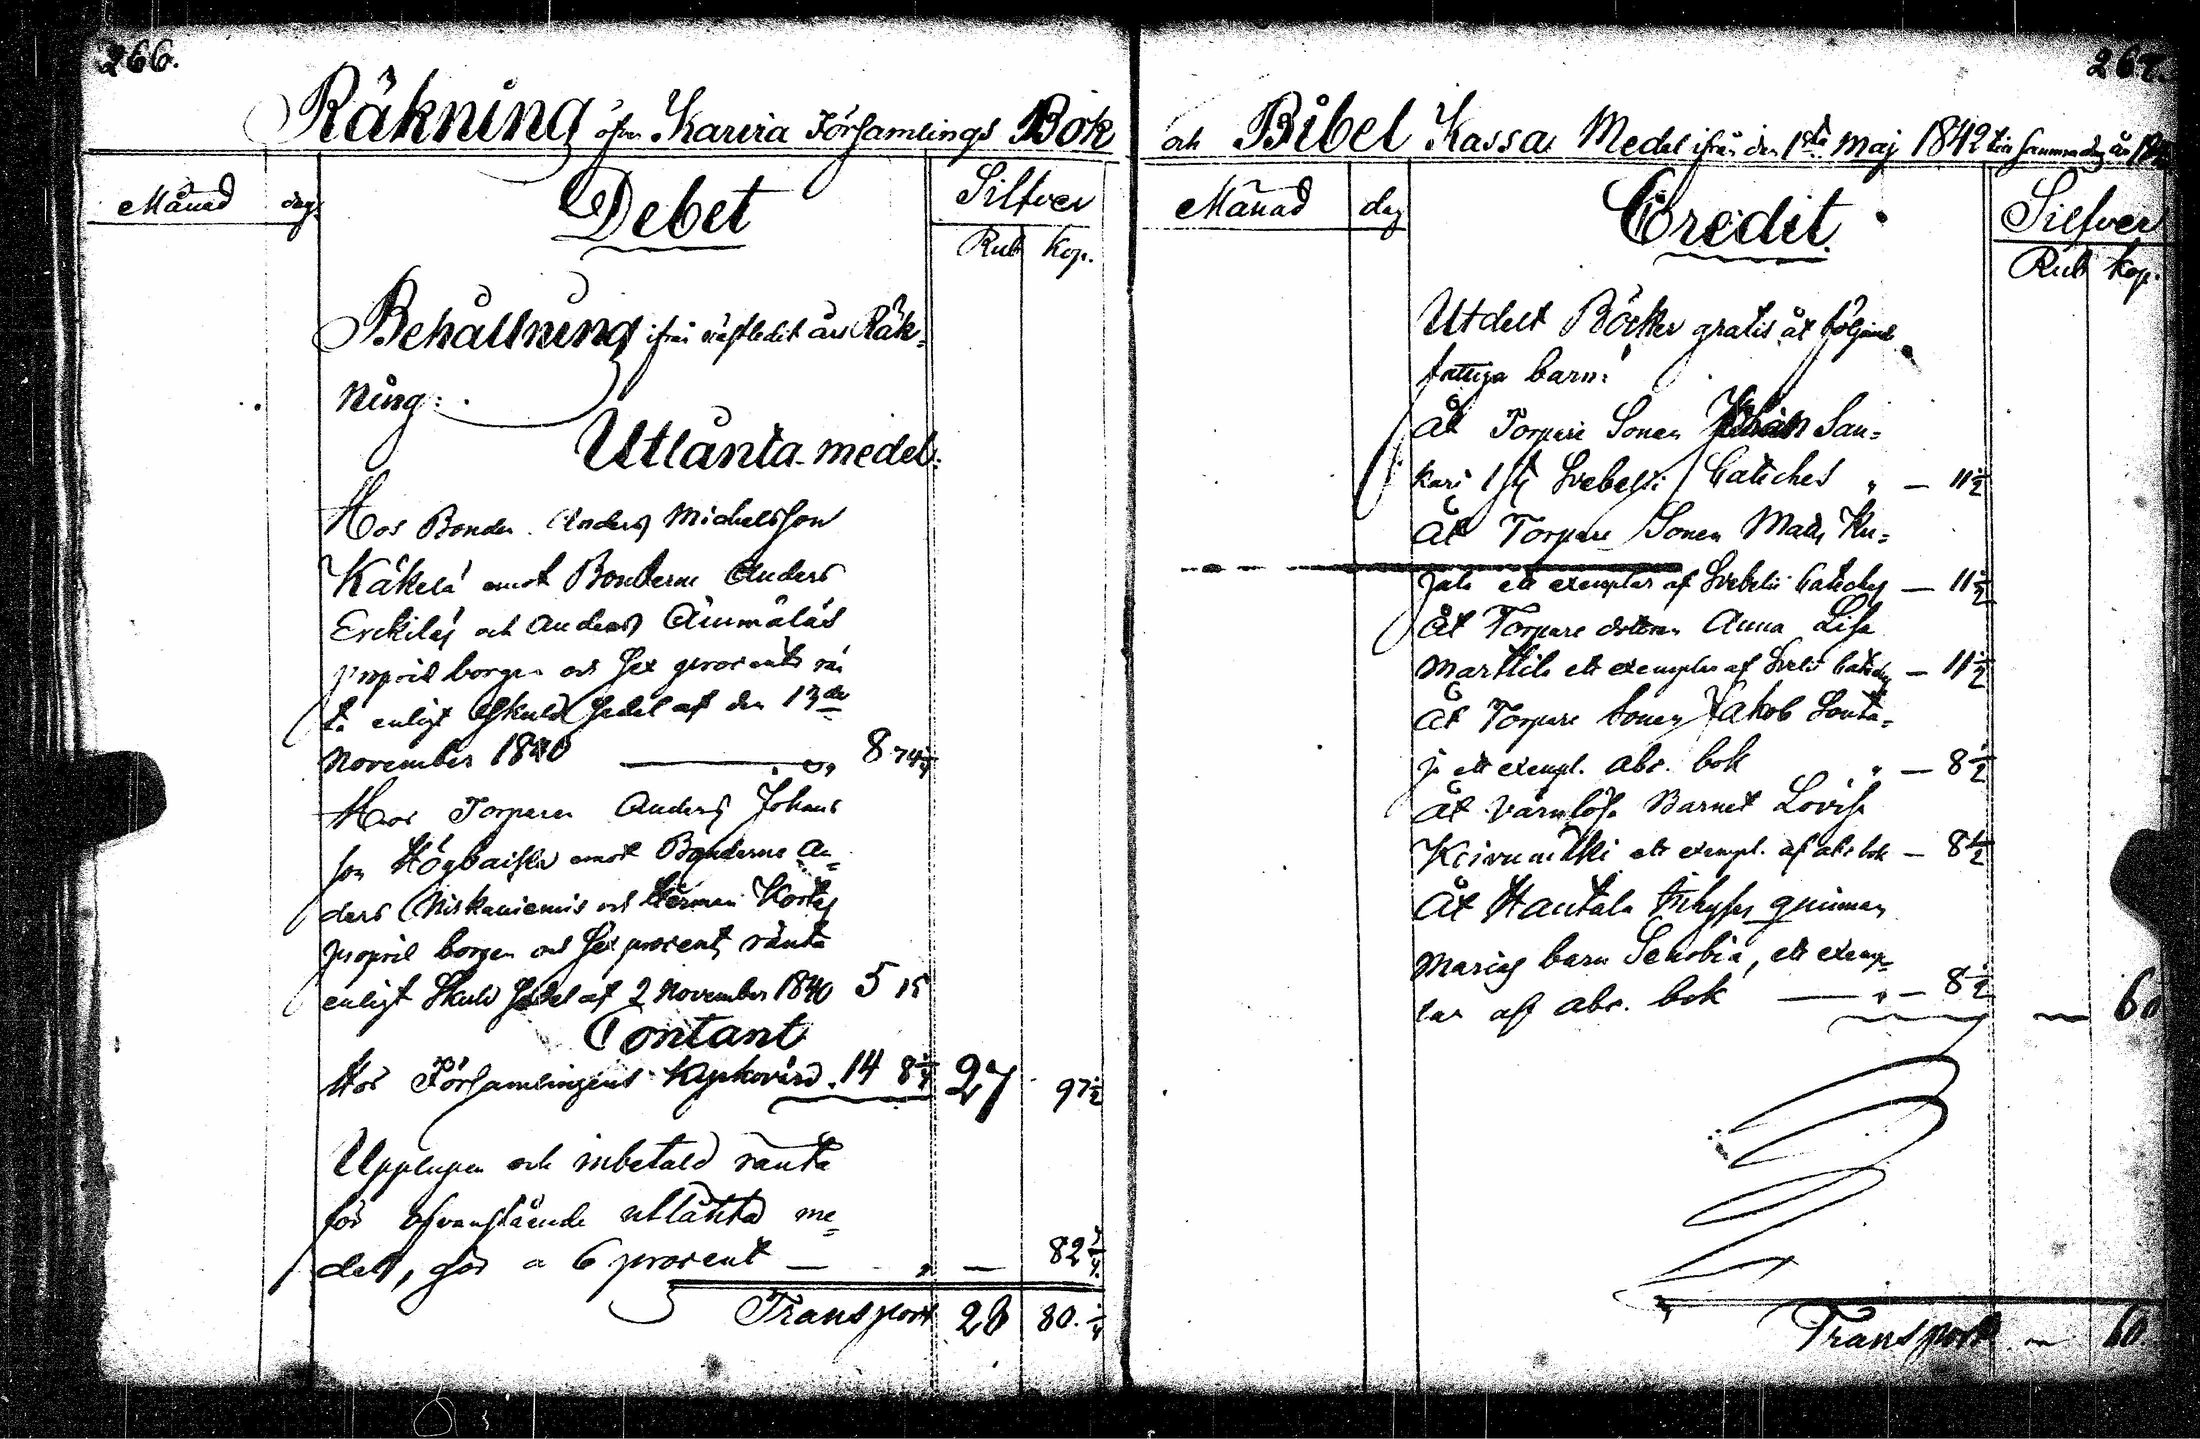 266.
Räkning öfver Karvia Församlings Bok
Månad dag Debet Silfver
Rub Kop.
Behållning ifrån sistledit års Räk-
ning:
Utlånta medel:
Hos Bonden Anders Michelsson
Käkelä emot Bönderne Anders
Erckiläs och Anders Ämmäläs
propriè borgen och sex procents rän
ta enligt Skuld Sedel af den 13de
November 1840 — " 8 74 1/4
Hos Torparen Anders Johans
son Högbaisla emot Bönderne An-
ders Niskaniemis och Herman Koskis
propriè borgen och sex procent ränta
enligt Skuld Sedel af 2 November 1840 5 15
Contant
Hos Församlingens Kyrkovärd. 14 8 1/4 27 97 1/2
Upplupen och inbetald ränta
för ofvanstående utlånta me-
del, gör a 6 procent — " — 82 3/4
Transport 28 80. 1/4
267.
och Bibel Kassa Medel ifrån den 1sta Maj 1842 till samma dag år
Månad dag Credit. Silfver
Rub Kop.
Utdelt Böcker gratis åt följande
fattiga barn:
Åt Torpare Sonen Johan San-
kari 1 st Svebelii Cateches " — 11 1/2
Åt Torpare Sonen Mats Ku-
jala ett exemplar af Svebelii Cateches — 11 1/2
Åt Torpare dottren Anna Lisa
Marttila ett exemplar af Sveb Cateches — 11 1/2
Åt Torpare Sonen Jakob Louka-
ja ett exempl. abc. bok " — 8 1/2
Åt Värnlösa Barnet Lovisa
ett exempl. af abc bok — 8 1/2
Åt Hautala Inhyses quinnan
Marias barn Senobia, ett exemp-
lar af abc. bok — " — 8 1/2 — 60
Transport — 60